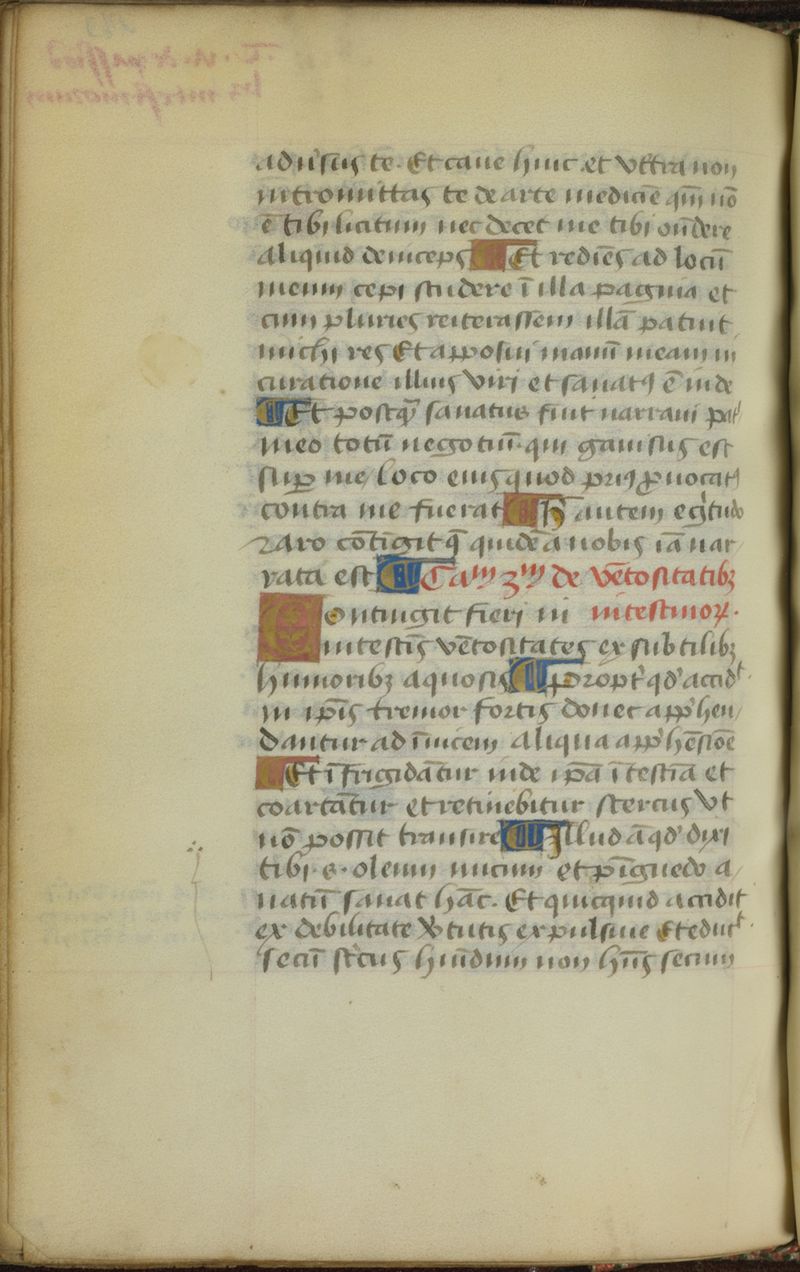 adũsus te. Et caue hinc et vltra non
intromittas te de arte medicīe qm̄ nō
ē tibi licitum nec decet me tibi on̄dere
aliquid deinceps Et rediēs ad locū
meum cepi studere ī illa pagina et
cum pluries reiterassem illā patuit
michi res Et apposui manū meam in
curatione illius viri et sanatꝰ ē inde
Et postqᷓ sanatus fuit narraui pat͛
meo totū negotiū. qui gauisus est
suꝑ me loco eius quod priꝰ ꝓuocatꝰ
contra me fuerat H̄ autem egͥtudo
raro cōtigit qͥ quidē a nobis iā nar
rata est Cam 3m de vētositatibꝫ
Contingit fieri in intestinoꝝ.
intestis̄ vētositates ex subtilibꝫ
humoribꝫ aquosis Propt͛ qđ accidt͛
in ip̄is tremor fortis donec app̄hen
dantur ad īuicem aliqua app̄hēsiōe
Et īfrigidātur inde ip̄a ītestīa et
coartātur et retinebitur stercus vt
nō possit transire Illud āqđ dixi
tibi .s. oleum nucum et pīguedo a
natū sanat hāc. Et quicquid accidit
ex debilitate v͛tutis expulsiue Et educt͛.
secū st͛cus humdum non hn̄s secum